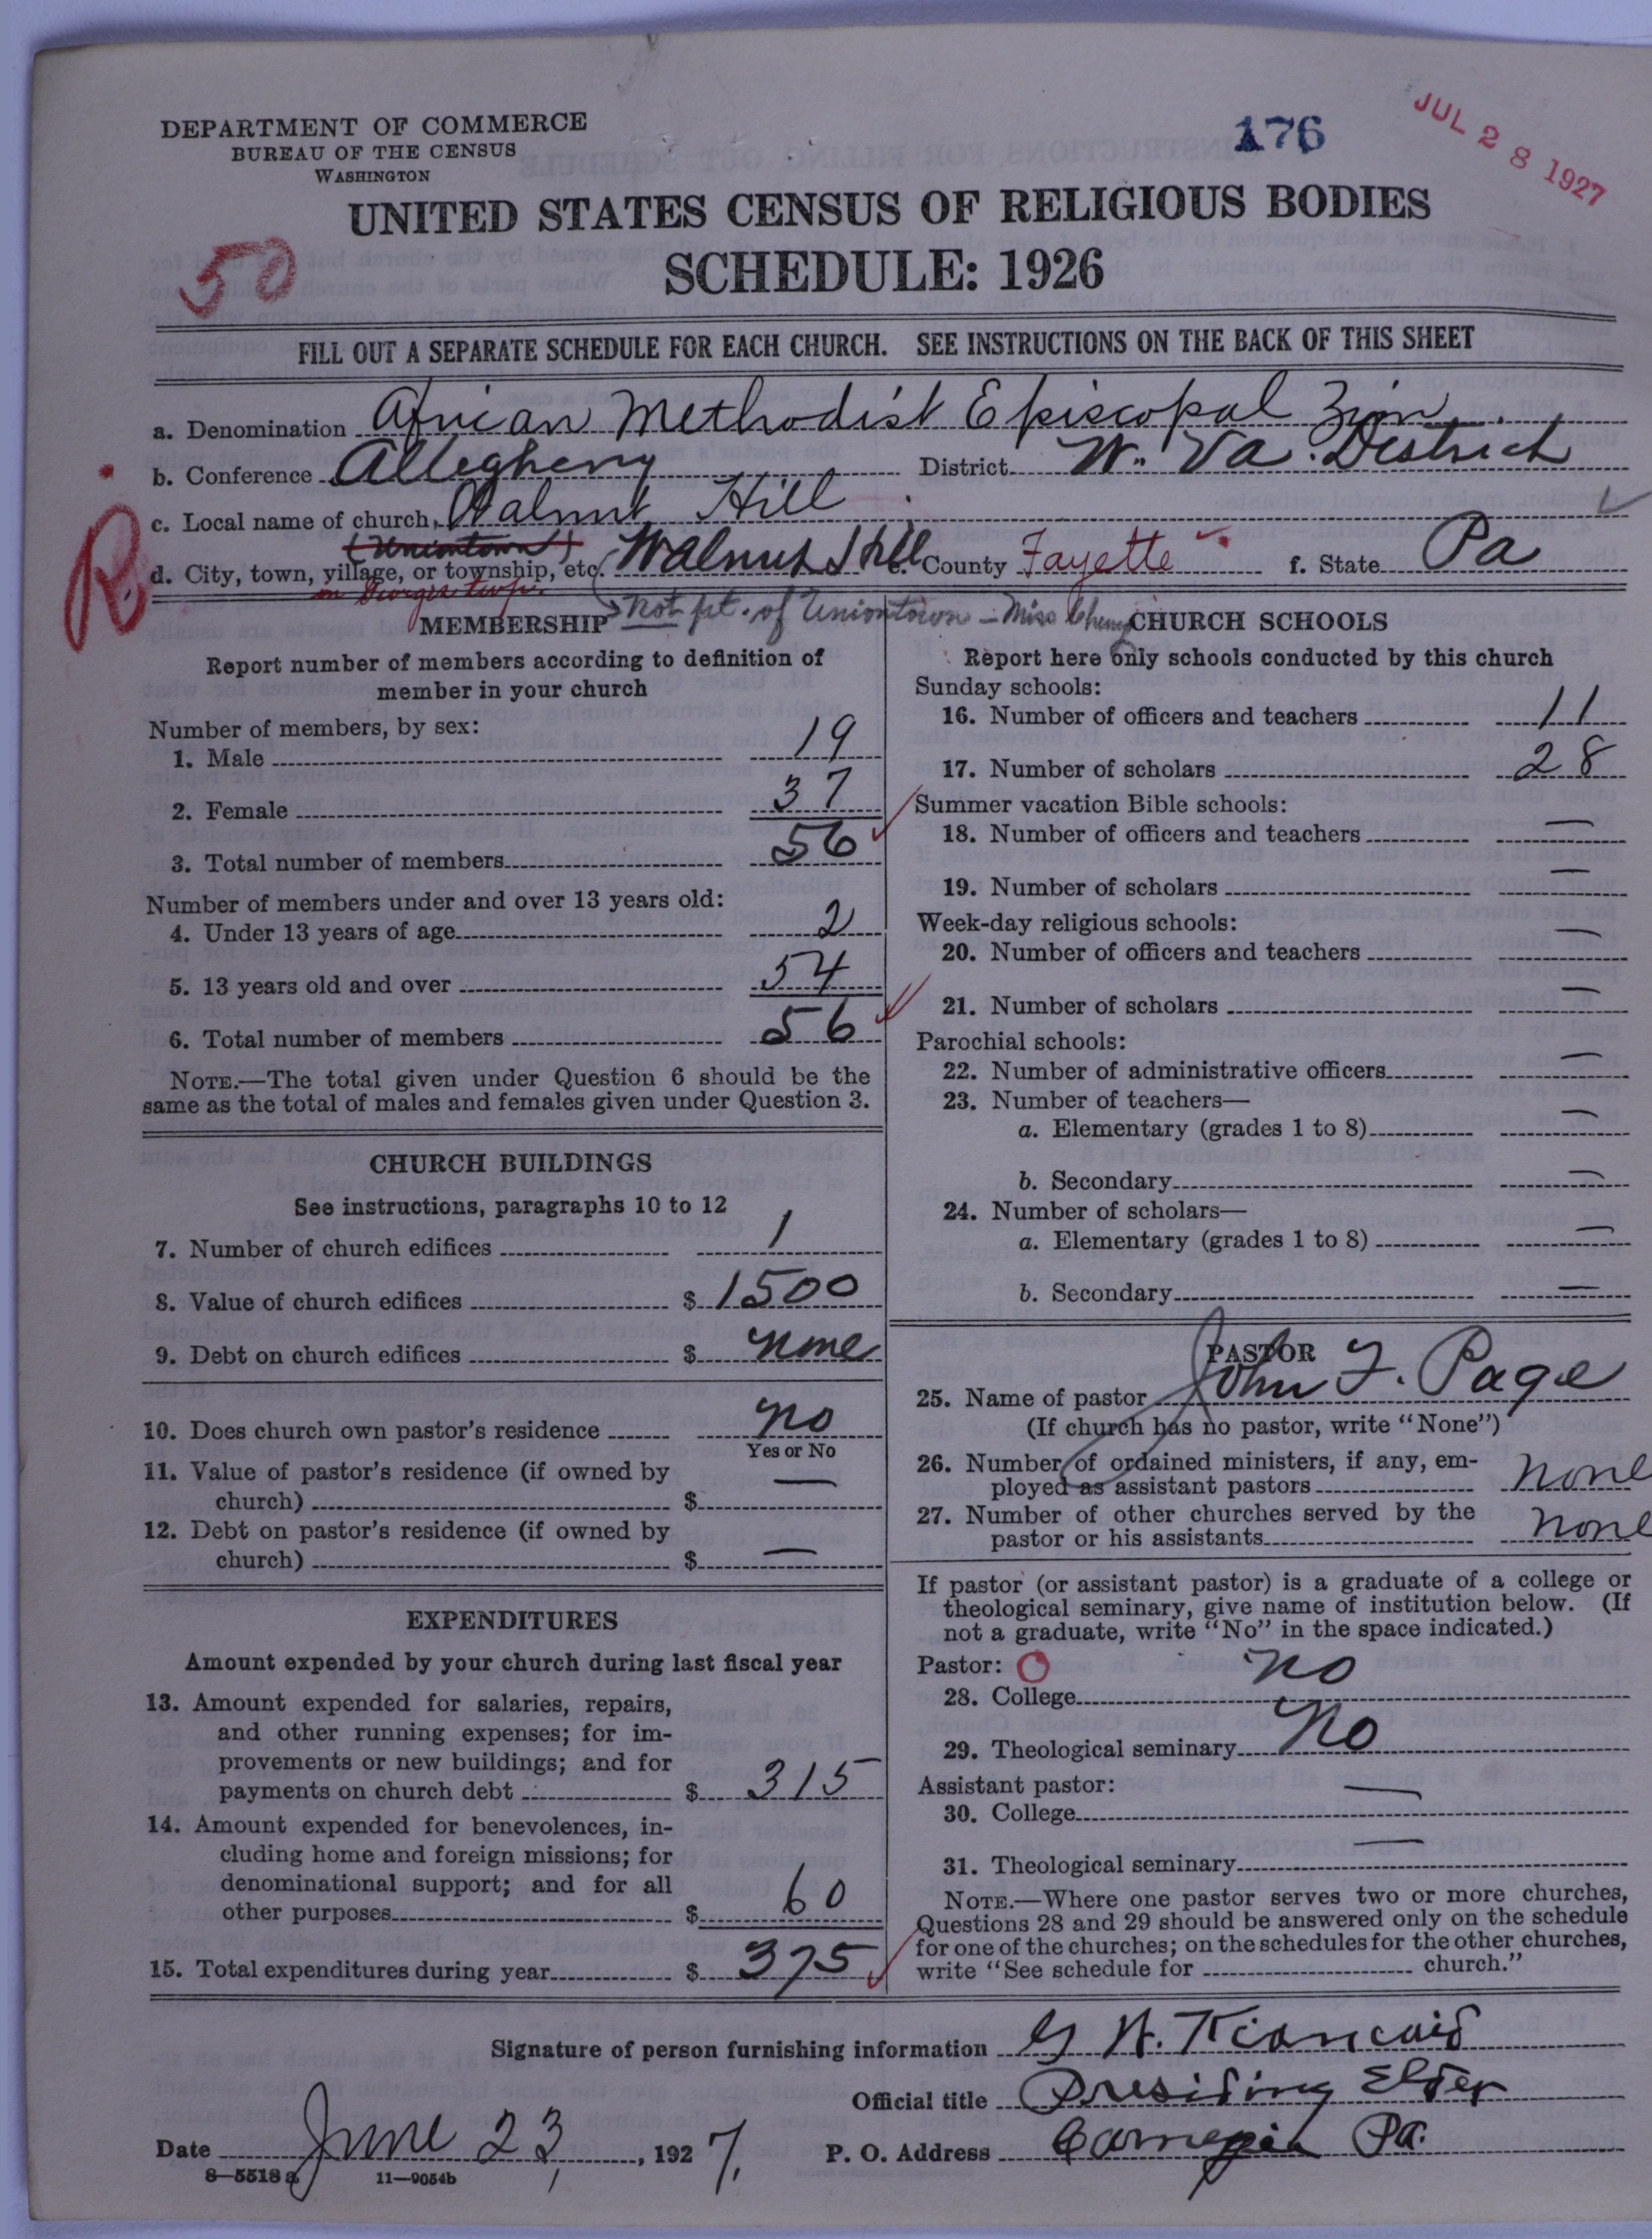 DEPARTMENT OF COMMERCE
BUREAU OF THE CENSUS
WASHINGTON
176
JUL 28 1927
UNITED STATES CENSUS OF RELIGIOUS BODIES
SCHEDULE: 1926
50
FILL OUT A SEPARATE SCHEDULE FOR EACH CHURCH. SEE INSTRUCTIONS ON THE BACK OF THIS SHEET
a. Denomination African Methodist Episcopal Zion
b. Conference Allegheny District W. Va. District
c. Local name of church Walnut Hill
(Uniontown)
R
d. City, town, village, or township, etc. Walnut Hill e. County Fayette f. State Pa
in Georges twp.
Not pt. of Uniontown – Miss
MEMBERSHIP
Report number of members according to definition of
member in your church
Number of members, by sex:
1. Male 19
2. Female 37
3. Total number of members 56
Number of members under and over 13 years old:
4. Under 13 years of age 2
5. 13 years old and over 54
6. Total number of members 56
NOTE.—The total given under Question 6 should be the
same as the total of males and females given under Question 3.
CHURCH BUILDINGS
See instructions, paragraphs 10 to 12
7. Number of church edifices 1
8. Value of church edifices $ 1500
9. Debt on church edifices $ none
10. Does church own pastor's residence no
Yes or No
11. Value of pastor's residence (if owned by
church) $ —
12. Debt on pastor's residence (if owned by
church) $ —
EXPENDITURES
Amount expended by your church during last fiscal year
13. Amount expended for salaries, repairs,
and other running expenses; for im-
provements or new buildings; and for
payments on church debt $ 315
14. Amount expended for benevolences, in-
cluding home and foreign missions; for
denominational support; and for all
other purposes $ 60
15. Total expenditures during year $ 375
CHURCH SCHOOLS
Report here only schools conducted by this church
Sunday schools:
16. Number of officers and teachers 11
17. Number of scholars 28
Summer vacation Bible schools:
18. Number of officers and teachers —
19. Number of scholars —
Week-day religious schools:
20. Number of officers and teachers —
21. Number of scholars —
Parochial schools:
22. Number of administrative officers —
23. Number of teachers—
a. Elementary (grades 1 to 8) —
b. Secondary —
24. Number of scholars—
a. Elementary (grades 1 to 8) —
b. Secondary —
PASTOR
25. Name of pastor John F. Page
(If church has no pastor, write "None")
26. Number of ordained ministers, if any, em-
ployed as assistant pastors none
27. Number of other churches served by the
pastor or his assistants none
If pastor (or assistant pastor) is a graduate of a college or
theological seminary, give name of institution below. (If
not a graduate, write "No" in the space indicated.)
Pastor:
28. College no
29. Theological seminary No
Assistant pastor:
30. College —
31. Theological seminary —
NOTE.—Where one pastor serves two or more churches,
Questions 28 and 29 should be answered only on the schedule
for one of the churches; on the schedules for the other churches,
write "See schedule for church."
Signature of person furnishing information G H. Kioncaid
Official title Presiding Elder
Date June 23, 1927. P. O. Address Carnegie Pa.
8—5518 a 11—9054b